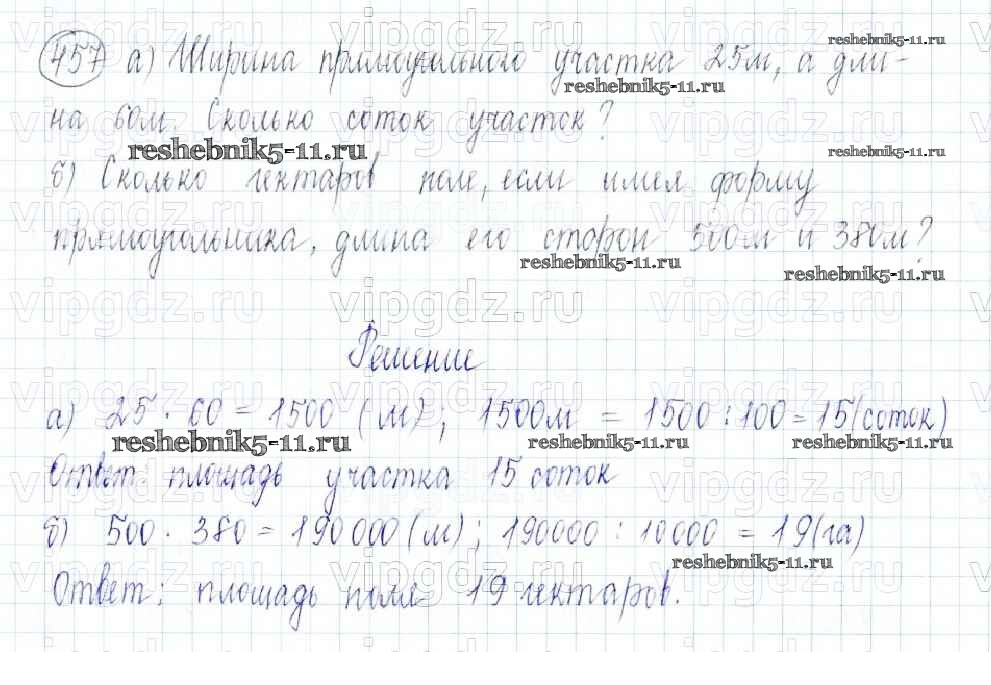 457 а) Ширина прямоугольного участка 25м, а дли-
на 60м. Сколько соток участок?
б) Сколько гектаров поле, если имея форму
прямоугольника, длина его сторон 500м и 380м?
Решение
а) 25 · 60 = 1500 (м); 1500м = 1500 : 100 = 15 (соток)
Ответ: площадь участка 15 соток
б) 500 · 380 = 190 000 (м); 190000 : 10000 = 19 (га)
Ответ: площадь поля 19 гектаров.
reshebnik5-11.ru
reshebnik5-11.ru
reshebnik5-11.ru
reshebnik5-11.ru
reshebnik5-11.ru
reshebnik5-11.ru
reshebnik5-11.ru
reshebnik5-11.ru
reshebnik5-11.ru
reshebnik5-11.ru
vipgdz.ru